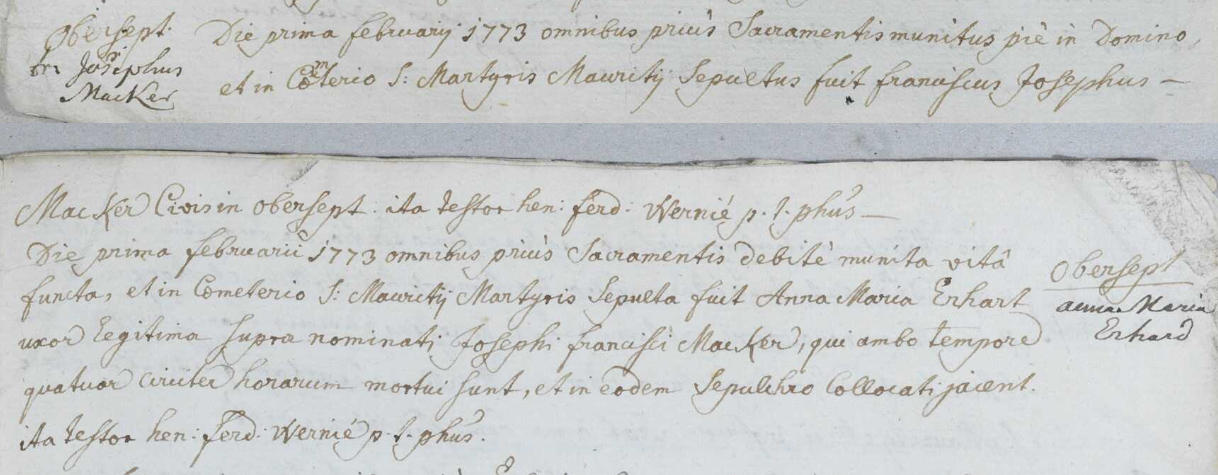 obersept.
fr: Josephus
Macker
Die prima februarij 1773 omnibus priùs Sacramentis munitus piè in Domino,
et in Cœmeterio S: Martyris Mauritij Sepultus fuit franciscus Josephus —
Macker Civis in obersept. ita testor hen: ferd: Wernié p. t. phûs —
Die prima februarii 1773 omnibus priùs Sacramentis debitè munita vitâ
functa, et in Cometerio S: Mauritij Martyris Sepulta fuit Anna Maria Erhart
uxor legitima supra nominati Josephi francisci Macker, qui ambo tempore
quatuor circiter horarum mortui sunt, et in eodem Sepulchro Collocati jacent.
ita testor hen: ferd: Wernié p. t. phûs.
obersept
anna Maria
Erhard